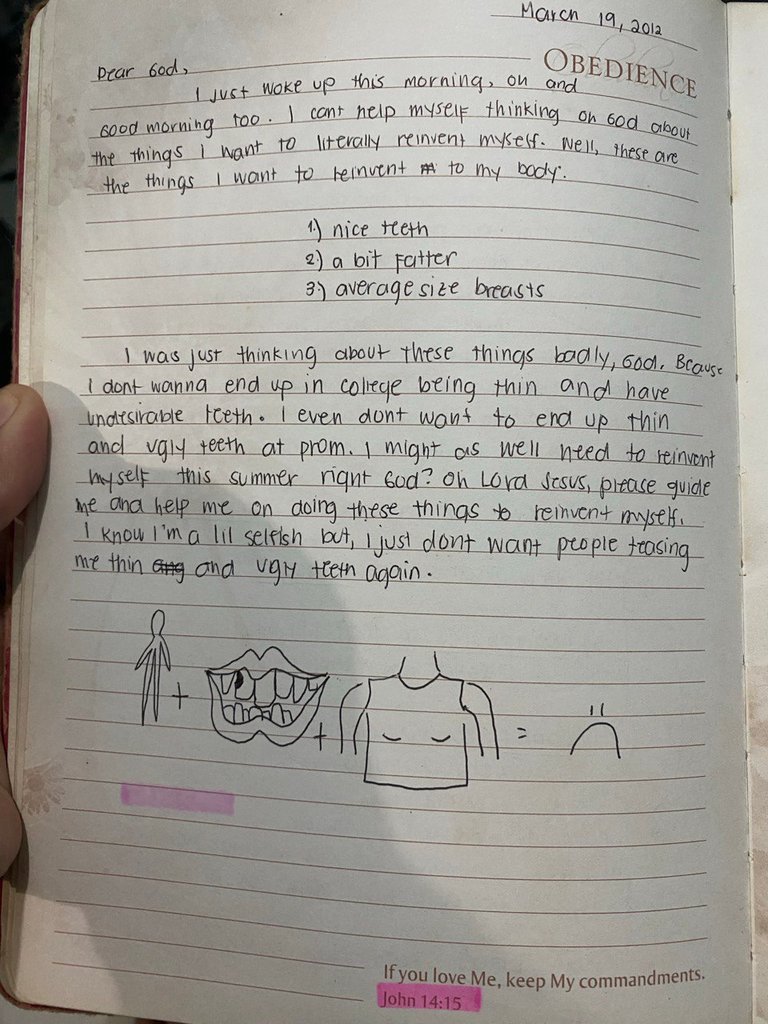 March 19, 2012
OBEDIENCE
Dear God,
I just woke up this morning, oh and
good morning too. I cant help myself thinking on God about
the things I want to literally reinvent myself. Well, these are
the things I want to reinvent to my body.
1.) nice teeth
2.) a bit fatter
3.) average size breasts
I was just thinking about these things badly, God. Bcause
I dont wanna end up in college being thin and have
undesirable teeth. I even dont want to end up thin
and ugly teeth at prom. I might as well need to reinvent
myself this summer right God? Oh Lord Jesus, please guide
me and help me on doing these things to reinvent myself.
I know I'm a lil selfish but, I just dont want people teasing
me thin ang and ugly teeth again.
+ + =
If you love Me, keep My commandments.
John 14:15